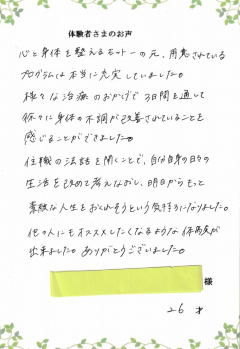 体験者さまのお声
心と身体を整えるモットーの元、用意されている
プログラムは本当に充実していました。
様々な治療のおかげで3日間を通して
徐々に身体の不調が改善されていることを
感じることができました。
住職の法話を聞くことで、自分自身の日々の
生活を改めて考えなおし、明日からもっと
素敵な人生をおくれそうという気持ちになりました。
他の人にもオススメしたくなるような体験が
出来ました。ありがとうございました。
様
26才